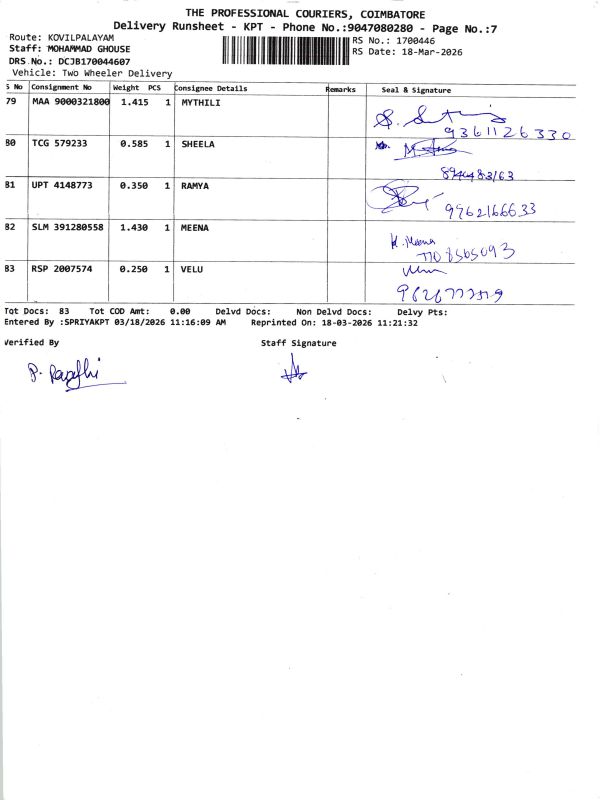 THE PROFESSIONAL COURIERS, COIMBATORE
Delivery Runsheet - KPT - Phone No.:9047080280 - Page No.:7
Route: KOVILPALAYAM RS No.: 1700446
Staff: MOHAMMAD GHOUSE RS Date: 18-Mar-2026
DRS No.: DCJB170044607
Vehicle: Two Wheeler Delivery
S No Consignment No Weight PCS Consignee Details Remarks Seal & Signature
79 MAA 9000321800 1.415 1 MYTHILI
9361126330
80 TCG 579233 0.585 1 SHEELA
81 UPT 4148773 0.350 1 RAMYA
9962166633
82 SLM 391280558 1.430 1 MEENA
K. Meena
83 RSP 2007574 0.250 1 VELU
Tot Docs: 83 Tot COD Amt: 0.00 Delvd Docs: Non Delvd Docs: Delvy Pts:
Entered By :SPRIYAKPT 03/18/2026 11:16:09 AM Reprinted On: 18-03-2026 11:21:32
Verified By Staff Signature